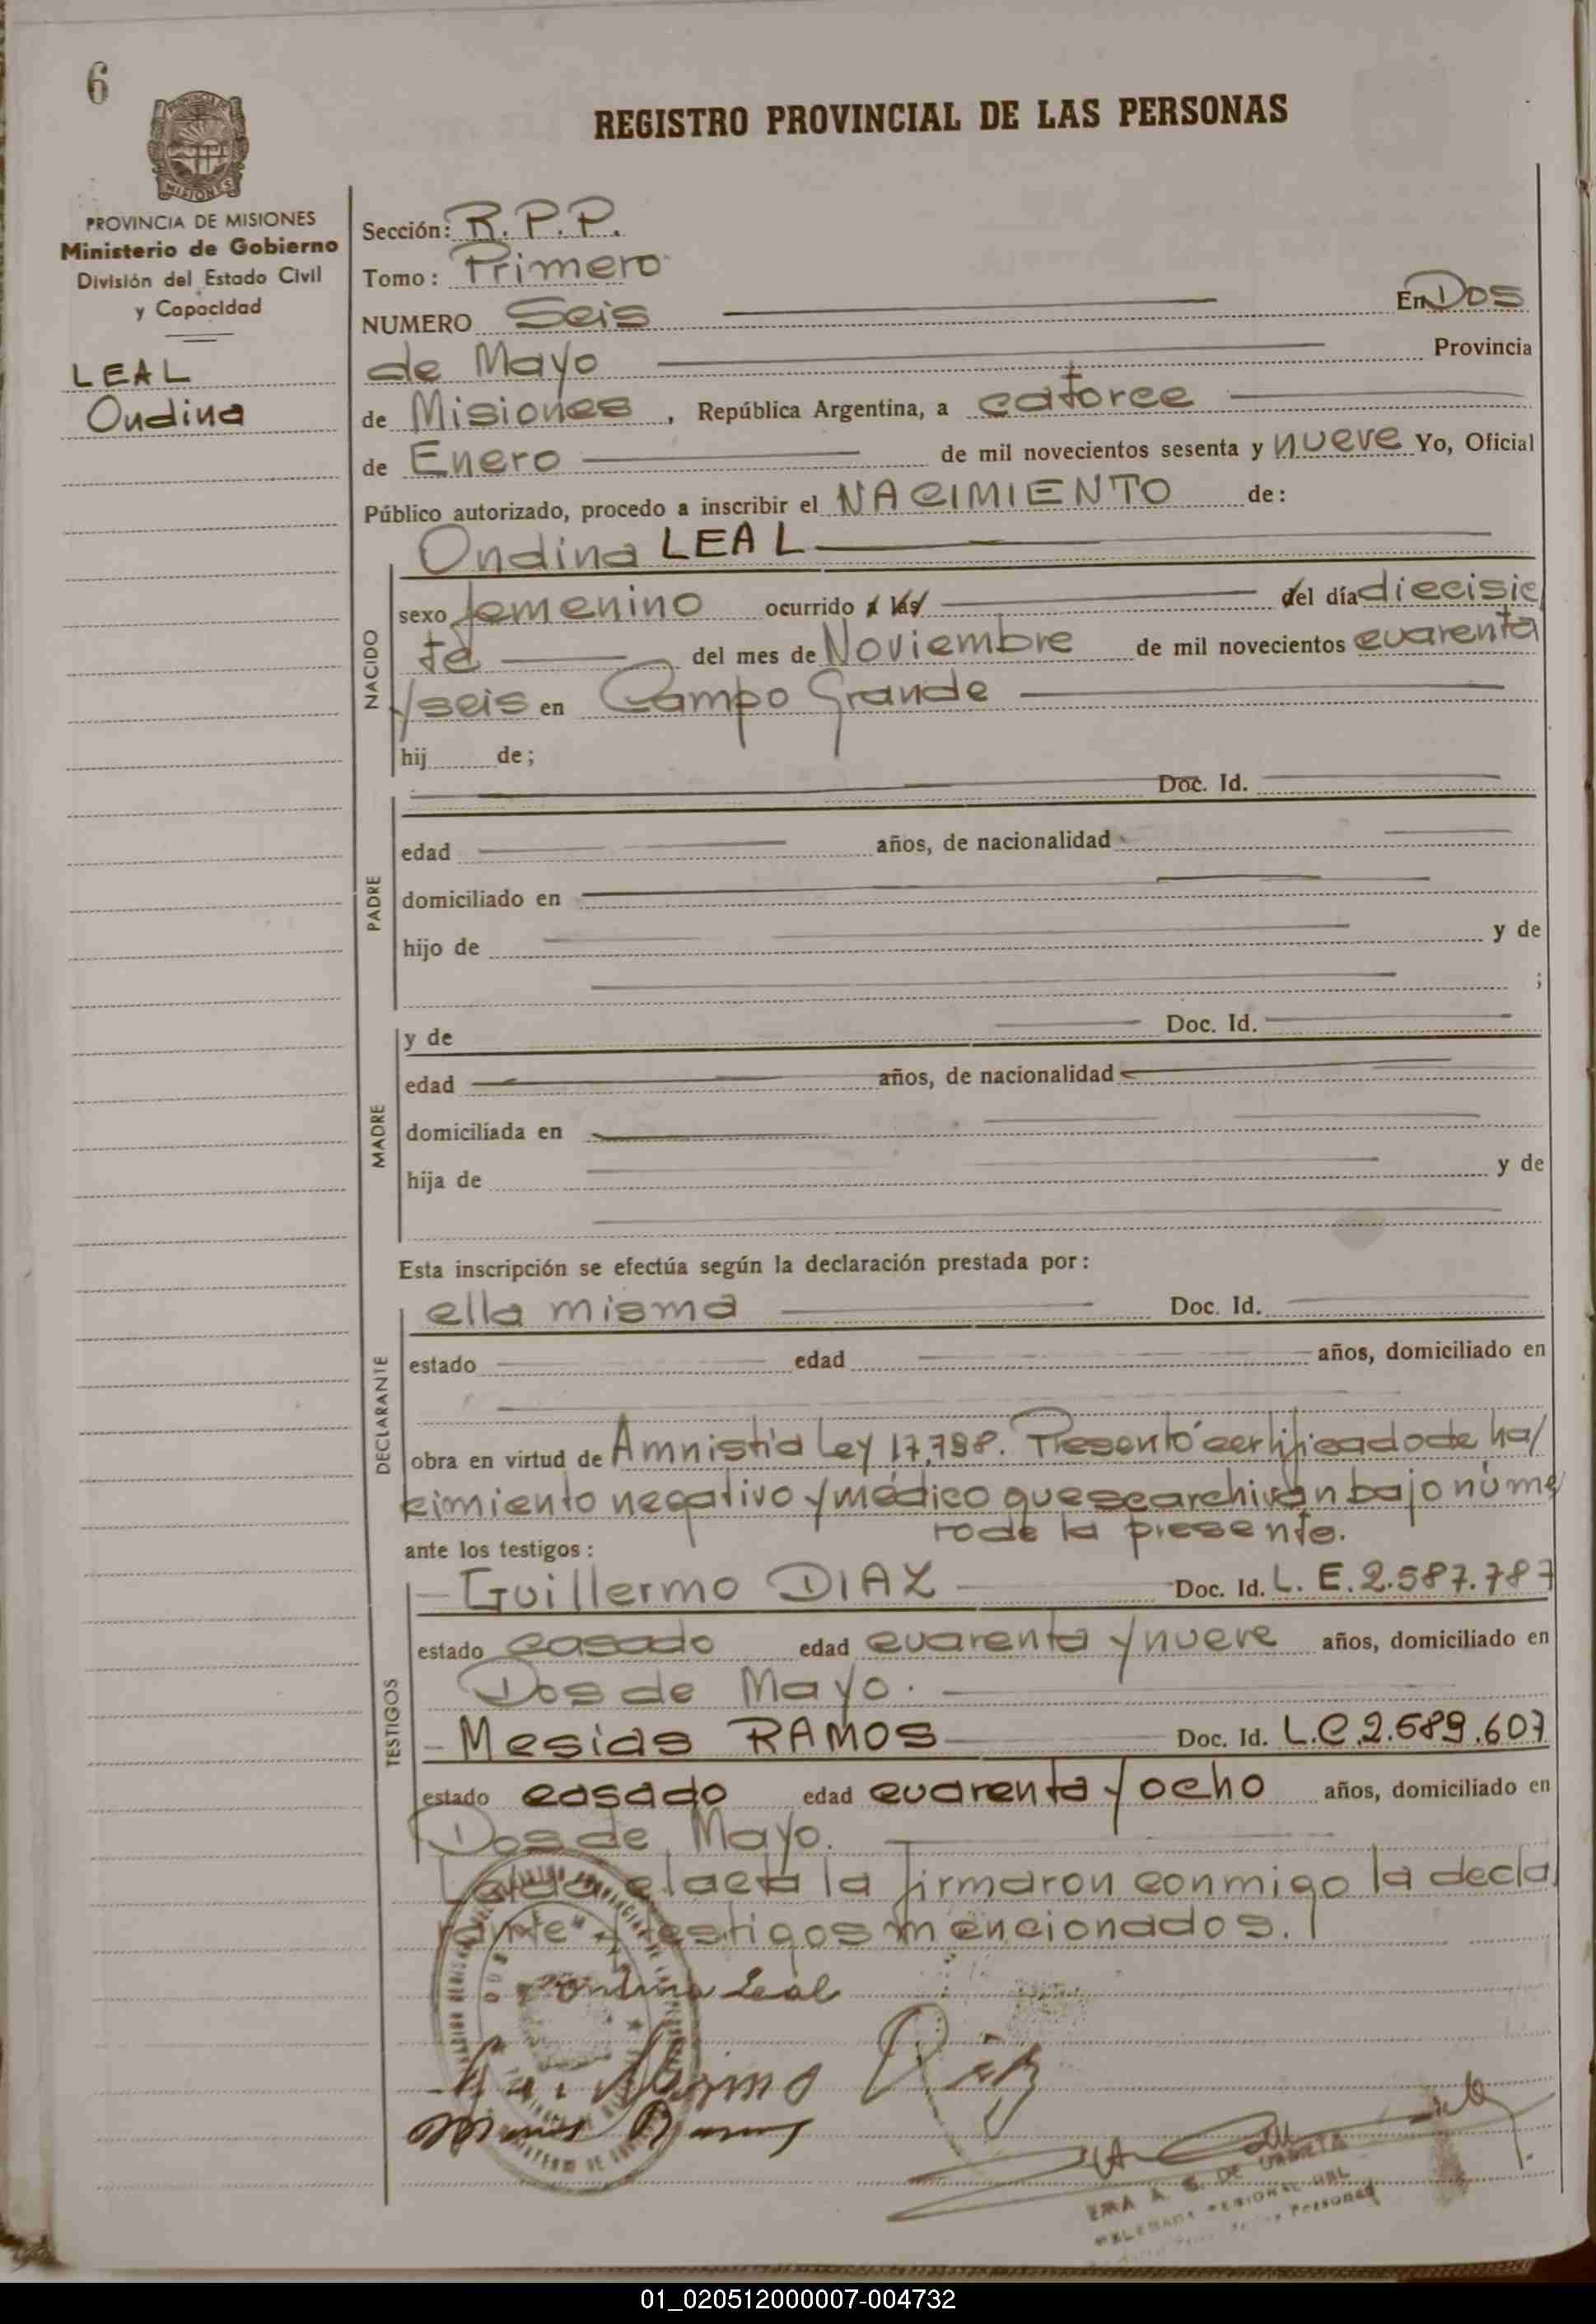 6
MISIONES
REGISTRO PROVINCIAL DE LAS PERSONAS
PROVINCIA DE MISIONES
Ministerio de Gobierno
División del Estado Civil
y Capacidad
LEAL
Ondina
Sección: R.P.P.
Tomo: Primero
NUMERO Seis En Dos
de Mayo Provincia
de Misiones, República Argentina, a catorce
de Enero de mil novecientos sesenta y nueve Yo, Oficial
Público autorizado, procedo a inscribir el NACIMIENTO de:
NACIDO
Ondina LEAL
sexo femenino ocurrido a las del día diecisie
te del mes de Noviembre de mil novecientos cuarenta
y seis en Campo Grande
hij de;
PADRE
Doc. Id.
edad años, de nacionalidad
domiciliado en
hijo de y de
;
MADRE
y de Doc. Id.
edad años, de nacionalidad
domiciliada en
hija de y de
Esta inscripción se efectúa según la declaración prestada por:
DECLARANTE
ella misma Doc. Id.
estado edad años, domiciliado en
obra en virtud de Amnistía Ley 17.798. Presentó certificado de na/
cimiento negativo y médico que se archivan bajo núme
ro de la presente.
ante los testigos:
TESTIGOS
- Guillermo DIAZ Doc. Id. L. E. 2.587.787
estado casado edad cuarenta y nueve años, domiciliado en
Dos de Mayo.
- Mesias RAMOS Doc. Id. L.C. 2.589.607
estado casado edad cuarenta y ocho años, domiciliado en
Dos de Mayo.
Leída el acta la firmaron conmigo la decla
rante y testigos mencionados.
Ondina Leal
DE URRETA
REGIONAL DEL
Personas
01_020512000007-004732